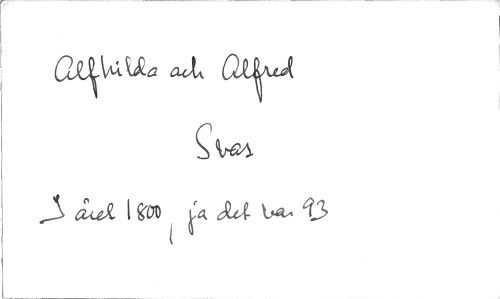 Alfhilda och Alfred
Svas
I året 1800, ja det var 93